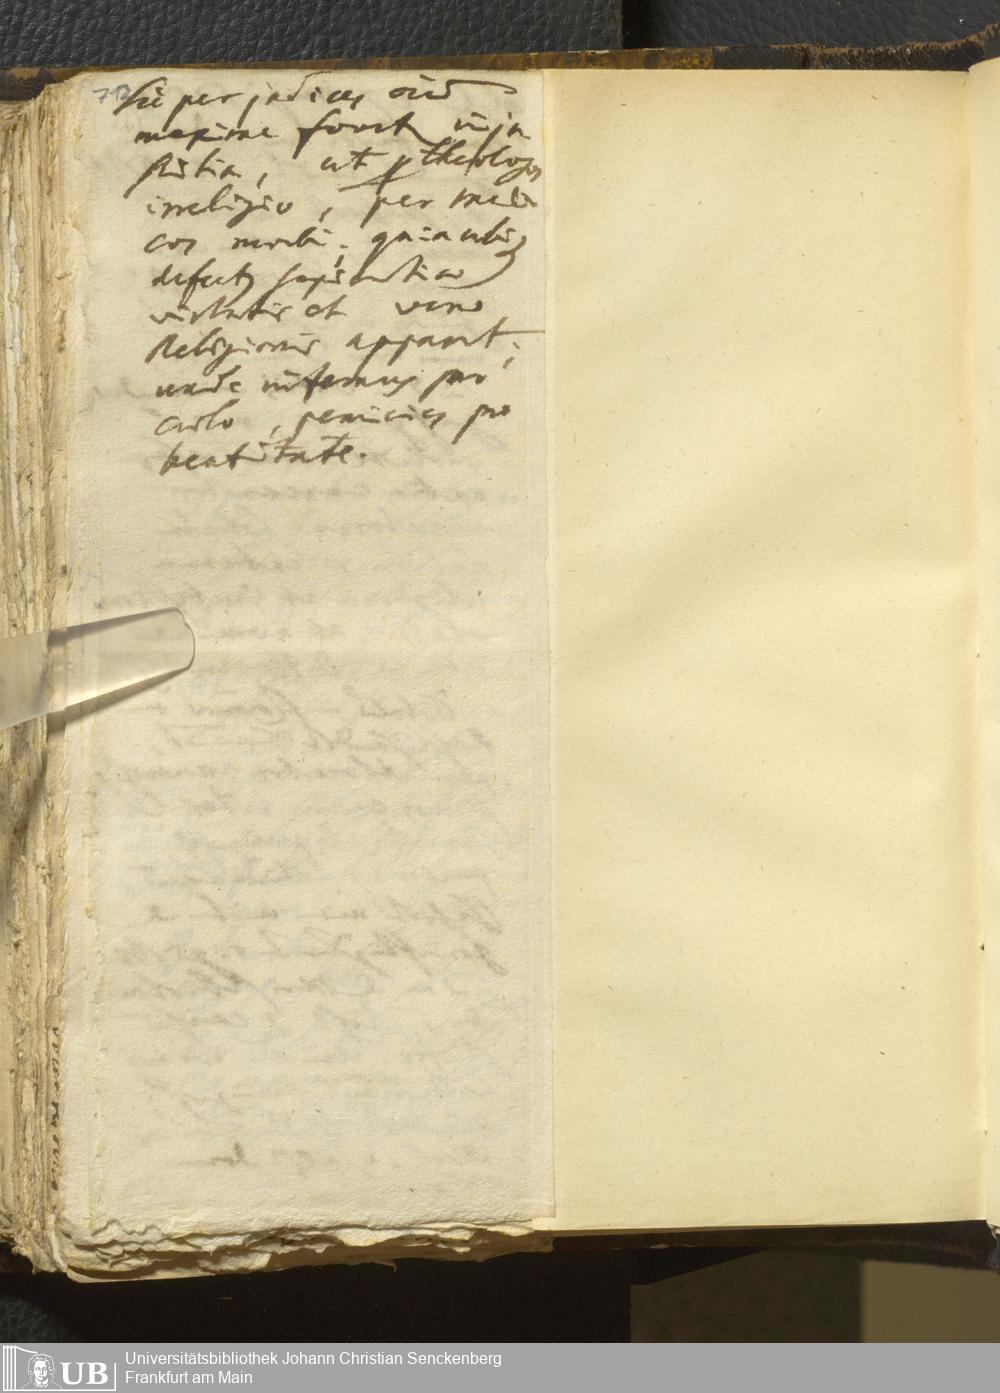 73
Sic per judices
maxime fovet inju
stitia, ut p theologos
irreligio, per medi
cos morbi; quia ubiq
defect sapientiae
virtutis et verae
Religionis apparet;
unde infernus pro
coelo, pernicies pro
beatitate.
UB
Universitätsbibliothek Johann Christian Senckenberg
Frankfurt am Main